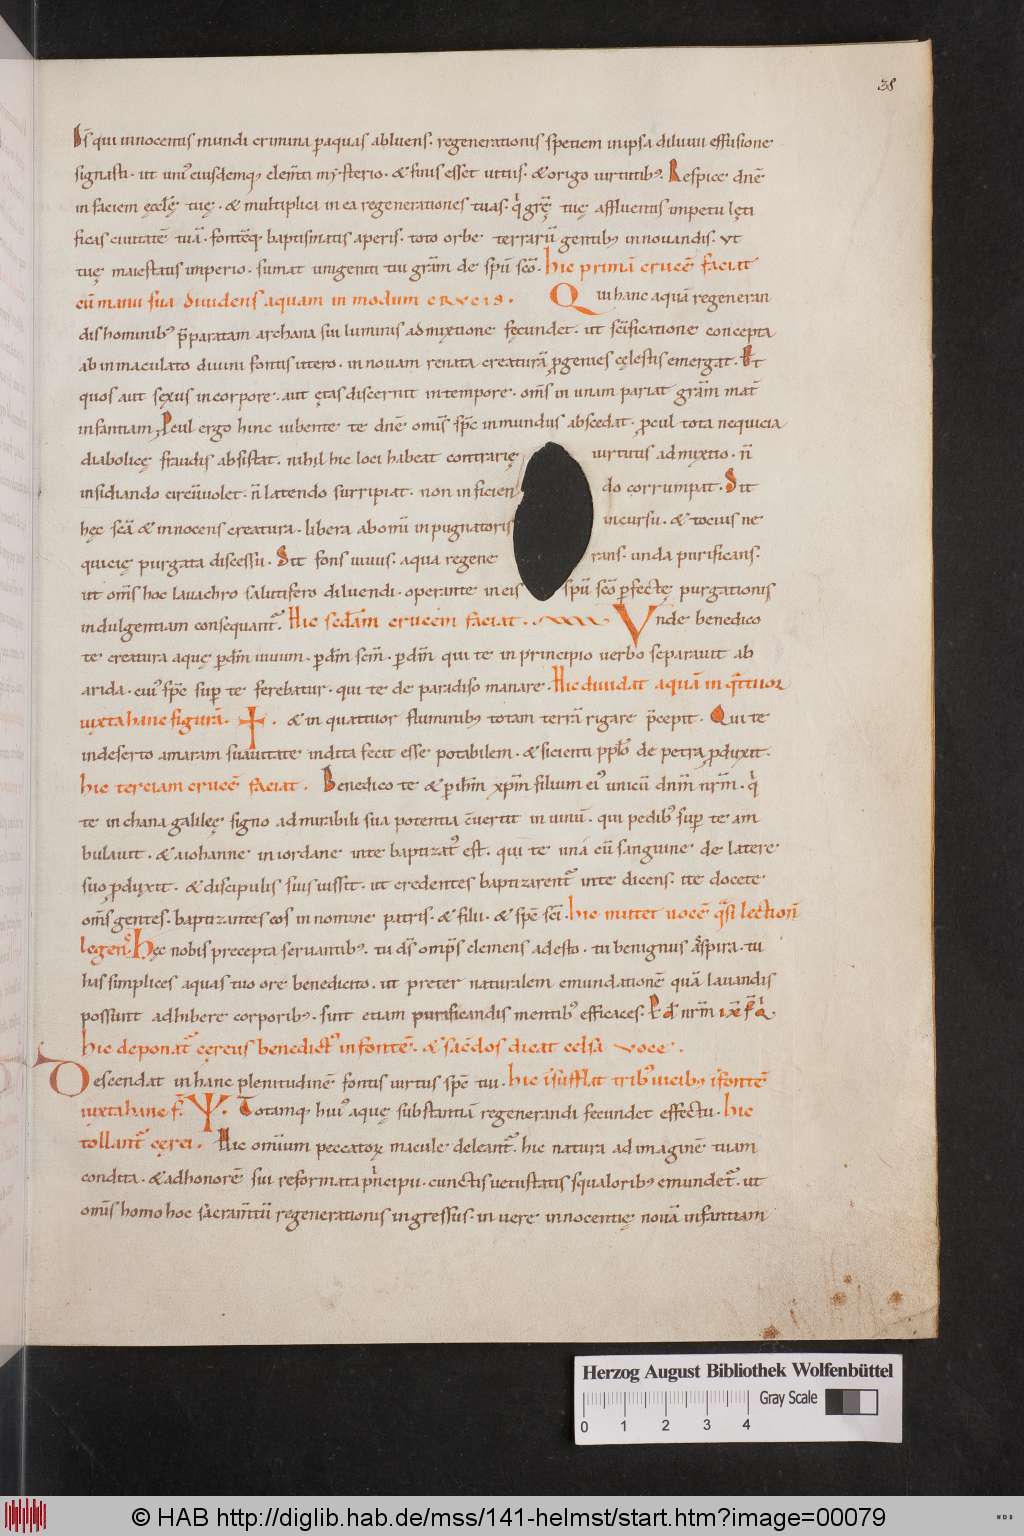 38
D̄s qui innocentis mundi crimina p aquas abluens. regenerationis spetiem in ipsa diluuii effusione
signasti. ut uni' eiusdemq; elem̄ti mysterio. & finis esset uitiis. & origo uirtutib;. Respice dn̄e
in faciem ęccłę tuę. & multiplica in ea regenerationes tuas. q̇ grę̄ tuę affluentis impetu lęti
ficas ciuitatē tuā. fontēq; baptismatis aperis. toto orbe terrarū gentib; innouandis. ut
tuę maiestatis imperio. sumat unigeniti tui gr̄am de sp̄u sc̄o. hic primā crucē faciat
cū manu sua diuidens aquam in modum crucis. Qui hanc aquā regeneran
dis hominib; p̄paratam archana sui luminis admixtione fęcundet. ut sc̄ificatione concepta
ab inmaculato diuini fontis utero. in nouam renata creaturā pgenies cęlestis emergat. Et
quos aut sexus in corpore. aut ętas discernit in tempore. om̄s in unam pariat gr̄am mat̄
infantiam. Pcul ergo hinc iubente te dn̄e omīs sp̄c inmundus abscedat. pcul tota nequicia
diabolicę fraudis absistat. nihil hic loci habeat contrarię uirtutis admixtio. n̄
insidiando circūuolet. n̄ latendo surripiat. non inficien do corrumpat. Sit
hęc sc̄a & innocens creatura. libera ab omī inpugnatoris incursu. & tocius ne
quicię purgata discessu. Sit fons uiuus. aqua regene rans. unda purificans.
ut om̄s hoc lauachro salutifero diluendi. operante in eis sp̄u sc̄o pfectę purgationis
indulgentiam consequant̄. Hic sed̄am crucem faciat. Vnde benedico
te creatura aquę p dm̄ uiuum. p dm̄ scm̄. p dm̄ qui te in principio uerbo separauit ab
arida. cui' sp̄c sup te ferebatur. qui te de paradiso manare. Hic diuidat aquā in q̄ttuor
iuxta hanc figurā. ✝. & in quattuor fluminib; totam terrā rigare p̄cepit. Qui te
in deserto amaram suauitate indita fecit esse potabilem. & sicienti pplo de petra pduxit.
hic terciam crucē faciat. Benedico te & p ih̄m xp̄m filium ei' unicū dnm̄ nrm̄. q̇
te in chana galileę signo admirabili sua potentia c̄uertit in uinū. qui pedib' sup te am
bulauit. & a iohanne in iordane in te baptizat' est. qui te una cū sanguine de latere
suo pduxit. & discipulis suis iussit. ut credentes baptizarent̄ in te dicens. ite docete
om̄s gentes. baptizantes eos in nomine patris. & filii. & sp̄c sc̄i. hic mittet uocē q̄si lectionī
legen̄. Hęc nobis precepta seruantib;. tu ds̄ omp̄s clemens adesto. tu benignus aspira. tu
has simplices aquas tuo ore benedicito. ut preter naturalem emundationē quā lauandis
possunt adhibere corporib;. sint etiam purificandis mentib' efficaces.
hic deponat̄ cęreus benedict' in fontē. & sacēdos dicat celsa uoce.
Descendat in hanc plenitudinē fontis uirtus sp̄c tui. hic īsufflat trib' uicib; ī fontē
iuxta hanc f̄. Ψ. Totamq; hui' aquę substantiā regenerandi fecundet effectu. hic
tollant̄ cęrei. Hic omīum peccatoꝝ macule deleant̄. hic natura ad imaginē tuam
condita. & ad honorē sui reformata p̄ncipii. cunctis uetustatis squaloribus emundet̄. ut
om̄s homo hoc sacram̄tū regenerationis ingressus. in uere innocentię nouā infantiam
Herzog August Bibliothek Wolfenbüttel
Gray Scale
0 1 2 3 4
© HAB http://diglib.hab.de/mss/141-helmst/start.htm?image=00079